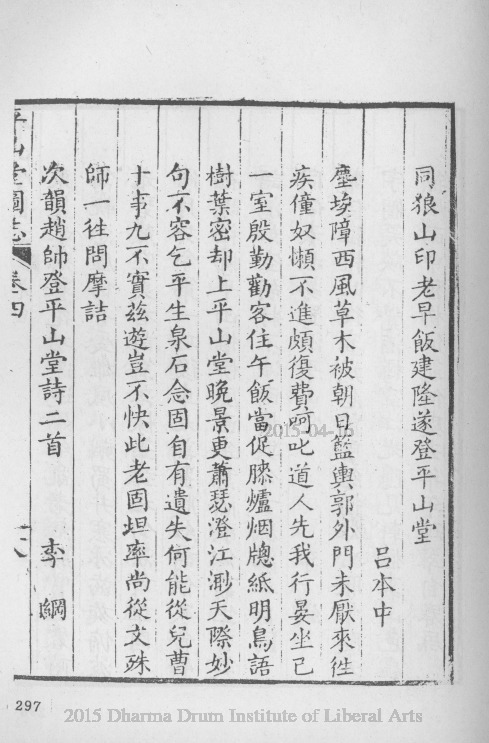 同狼山印老早飯建隆遂登平山堂
呂本中
塵埃障西風草木被朝日籃輿郭外門未厭來徃
疾僮奴懶不進頗復費呵叱道人先我行晏坐已
一室殷勤勸客住午飯當促膝爐烟牕紙明鳥語
樹葉密却上平山堂晚景更蕭瑟澄江渺天際妙
句不容乞平生泉石念固自有遺失何能從兒曹
十事九不實茲遊豈不快此老固坦率尚從文殊
師一徃問摩詰
次韻趙帥登平山堂詩二首 李綱
平山堂圖志 卷四
2015-04-16
297
2015 Dharma Drum Institute of Liberal Arts